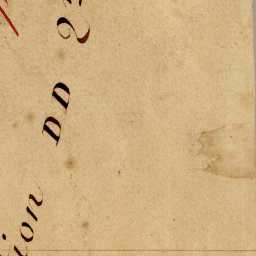 tion DD 2